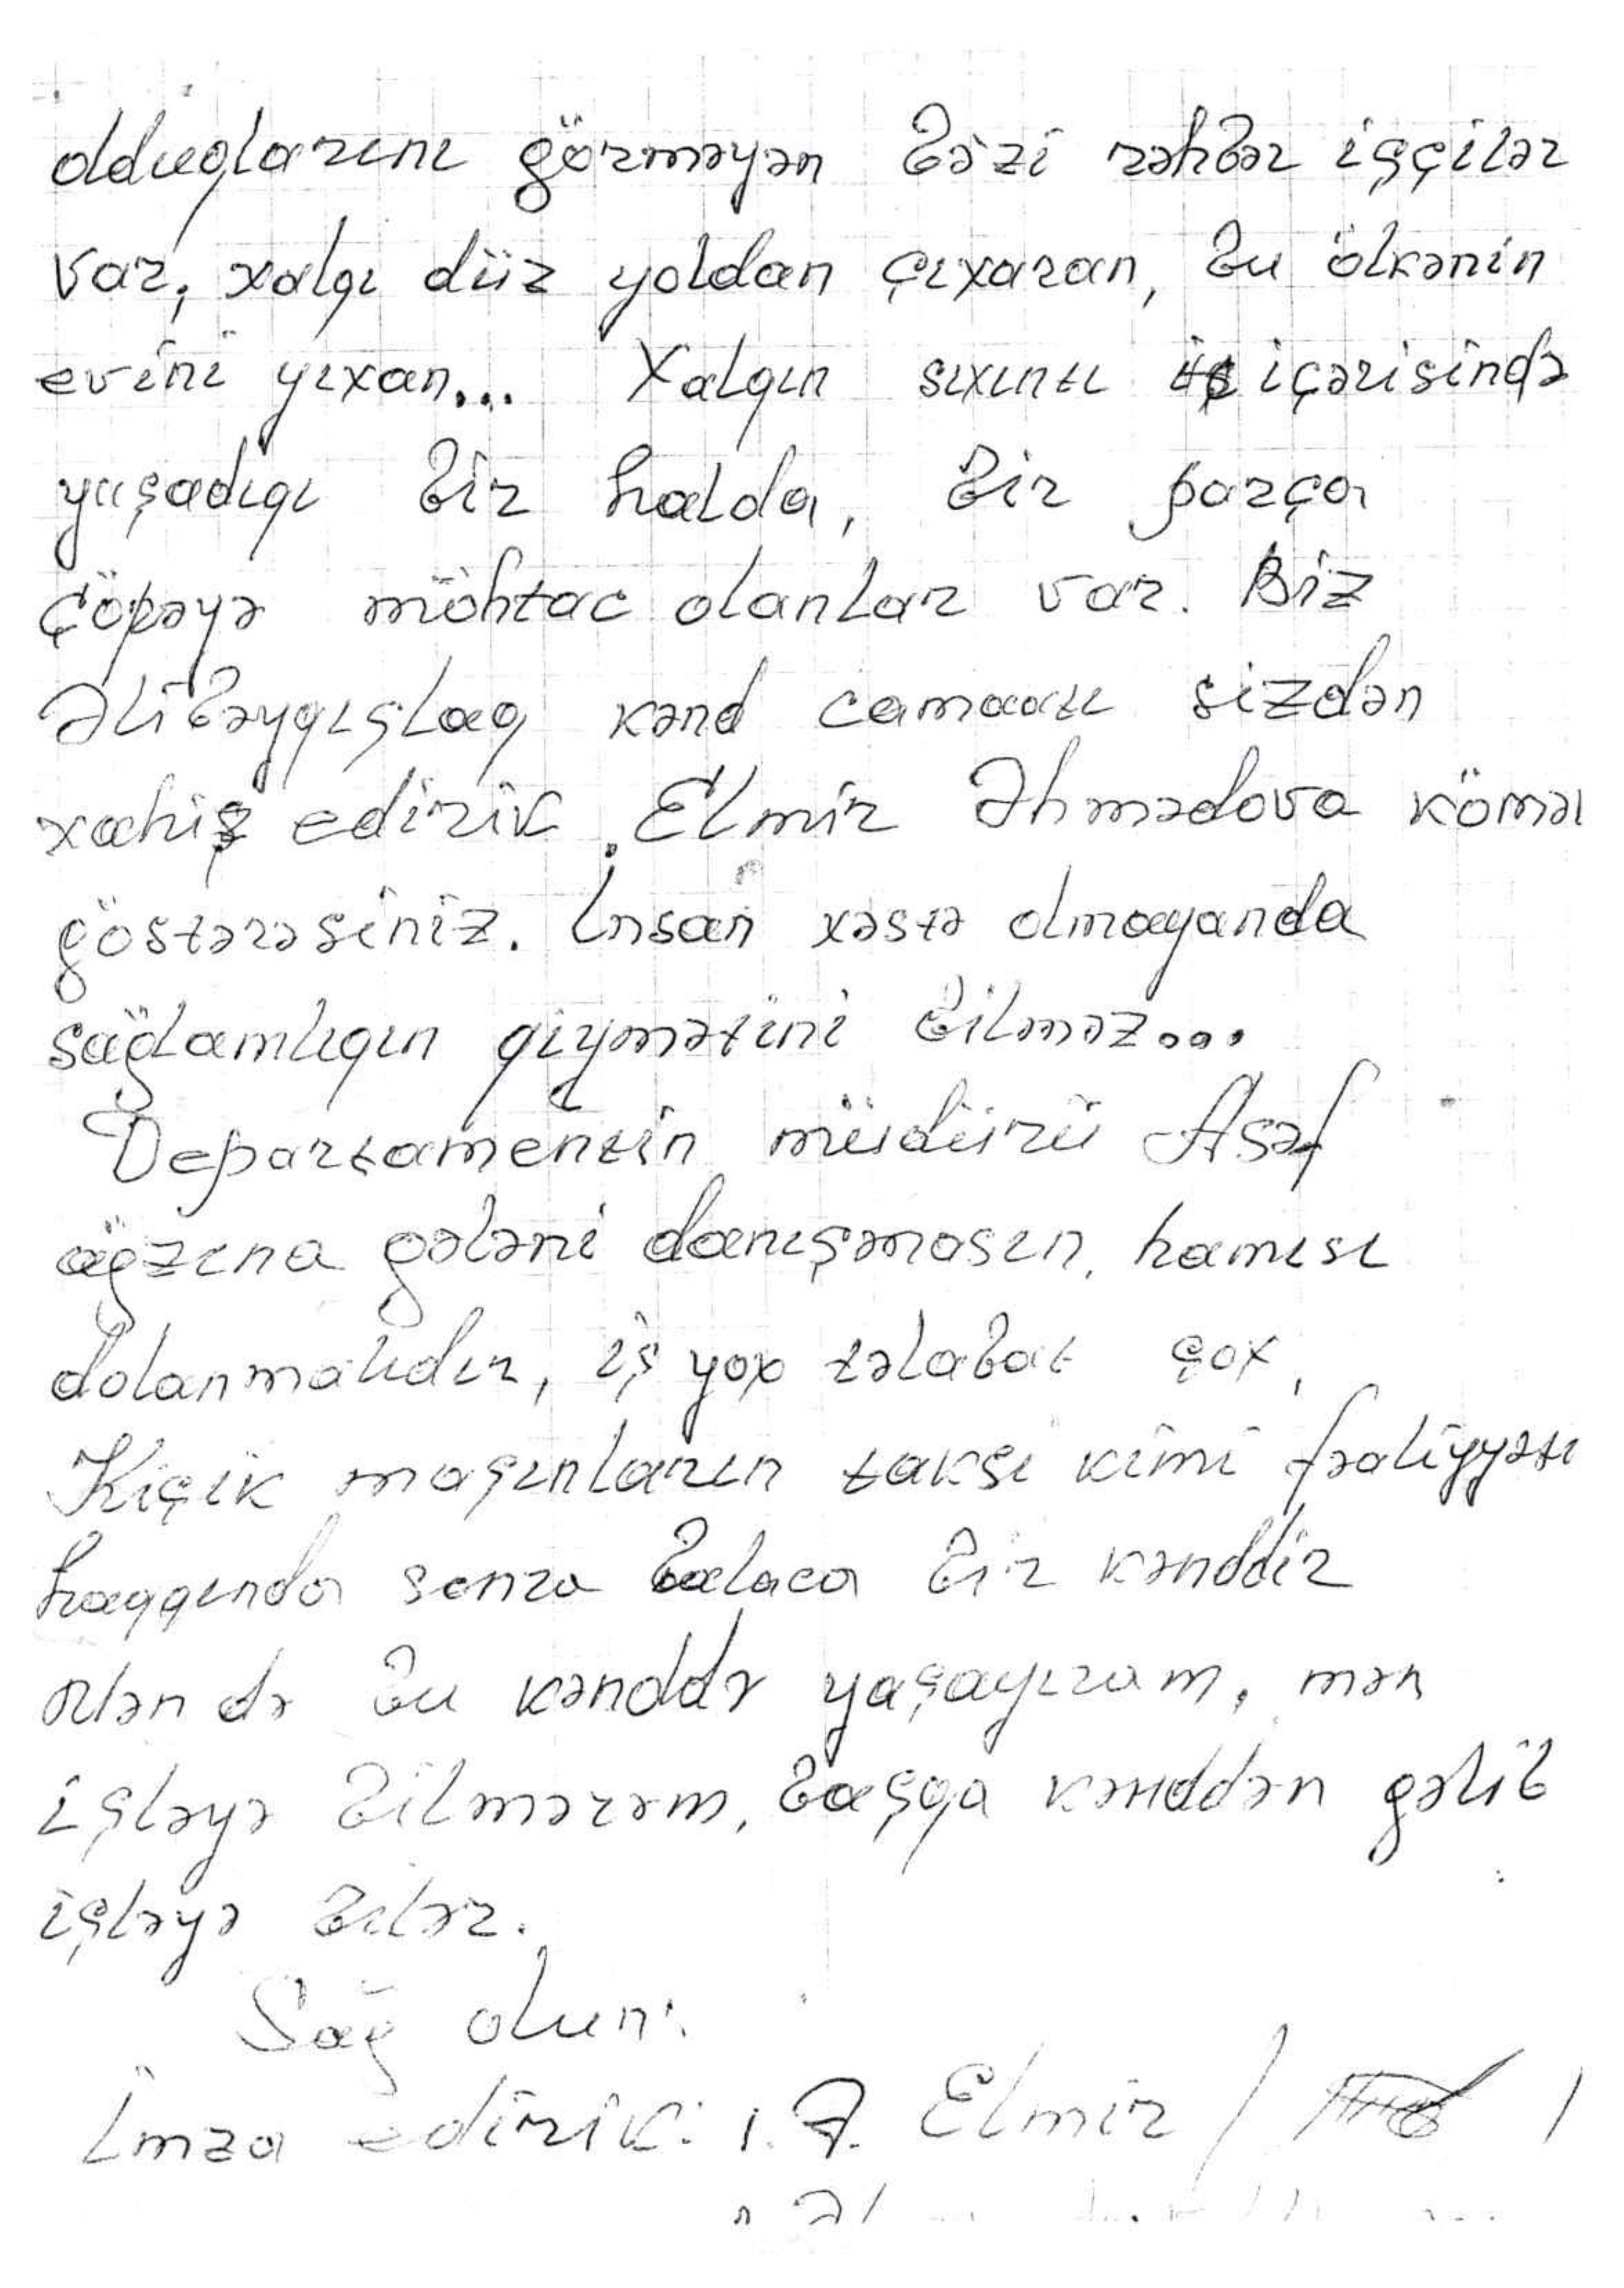 olduqlarını görməyən bəzi rəhbər işçilər
var, xalqı düz yoldan çıxaran, bu ölkənin
evini yıxan... Xalqın sıxıntı içərisində
yaşadıqı bir halda, bir parça
çöpəyə möhtac olanlar var. Biz
Əlibəyqışlaq kənd camaatı sizdən
xahiş edirik. Elmir Əhmədova kömə
göstərəsiniz. İnsan xəstə olmayanda
sağlamlıqın qiymətini bilməz...
Departamentin müdürü Asəf
ağzına gələni danışmasın, hamısı
dolanmalıdır, iş yox tələbat çox,
Kiçik maşınların taksi kimi fəaliyyəti
haqqında sonra balaca bir kənddir
Mən də bu kənddə yaşayıram, mən
işləyə bilmərəm, başqa kənddən gəlib
işləyə bilər.
Sağ olun:
İmza edirik: 1. Ə. Elmir / /